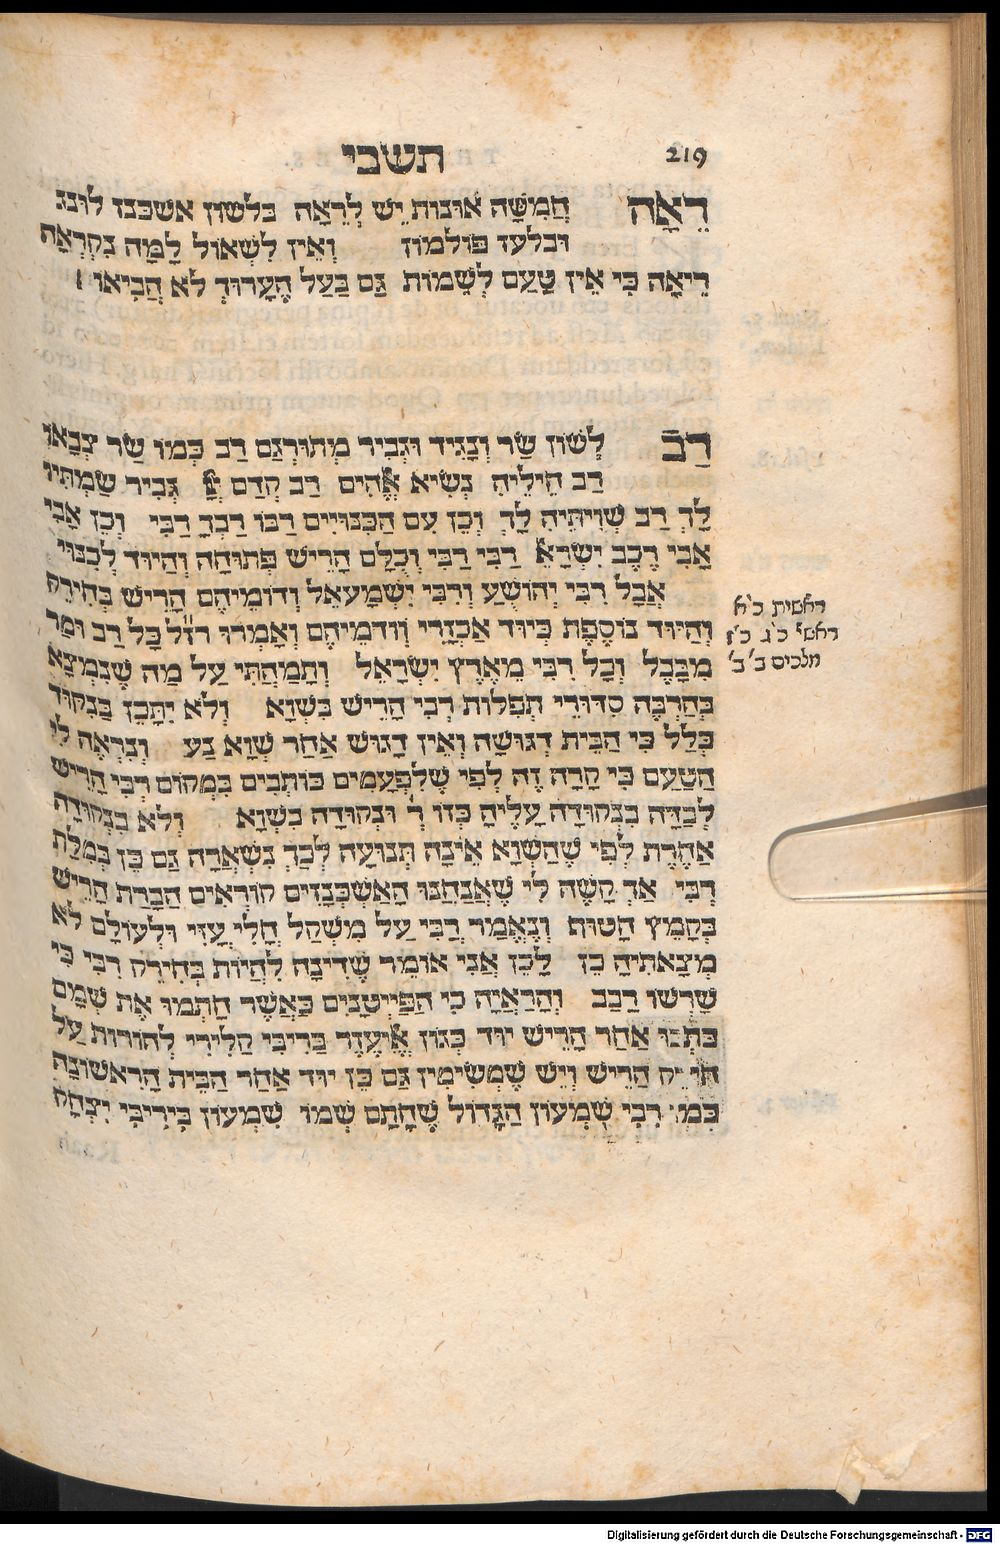 219
תשבי
רֵאָה חֲמִשָּׁה אוּנוֹת יֵשׁ לְרֵאָה בלשון אשכנז לונג
ובלעז פולמון וְאֵין לִשְׁאוֹל לָמָּה נִקְרְאָה
רֵיאָה כִּי אֵין טַעַם לְשֵׁמוֹת גַּם בַּעַל הֶעָרוּךְ לֹא הֲבִיאוֹ
רַב לְשׁוֹן שַׂר וְנָגִיד וּגְבִיר מְתוּרְגָּם רַב כְּמוֹ שַׂר צְבָאוֹ
רַב חֵילֵיהּ נְשִׂיא אֱהִים רַב קְדָם יְיָ גְּבִיר שַׂמְתִּיו
לָךְ רַב שַׁוִּיתֵיהּ לָךְ וְכֵן עִם הַכִּנּוּיִים רַבּוֹ רַבְּךָ רַבִּי וְכֵן אָבִי
אָבִי רֶכֶב יִשְׂרָאֵ רַבִּי רַבִּי וְכֻלָּם הָרֵישׁ פְּתוּחָה וְהַיּוּד לְכִנּוּי
אֲבָל רִבִּי יְהוֹשֻׁעַ וְרִבִּי יִשְׁמָעֵאל וְדוֹמֵיהֶם הָרֵישׁ בְּחִירֵק
וְהַיּוּד נוֹסֶפֶת כְּיוּד אַכְזָרִי וְדמֵיהֶם וְאָמְרוּ רז״ל כָּל רַב וּמַר
מִבָּבֶל וְכָל רִבִּי מֵאֶרֶץ יִשְׂרָאֵל וְתָמַהְתִּי עַל מַה שֶּׁנִּמְצָא
בְּהַרְבֵּה סִדּוּרֵי תְּפִלּוֹת רְבִּי הָרֵישׁ בִּשְׁוָא וְלֹא יִתָּכֵן בְּנִקּוּד
כְּלָל כִּי הַבֵּית דְגוּשָׁה וְאֵין דָּגוּשׁ אַחַר שְׁוָא נַע וְנִרְאֶה לִי
הַטַּעַם כִּי קָרָה זֶה לְפִי שֶׁלִּפְעָמִים כּוֹתְבִים בִּמְקוֹם רְבִּי הָרֵישׁ
לְבַדָּהּ בִּנְקוּדָה עָלֶיהָ כְּזוֹ ר׳ וּנְקוּדָה בִּשְׁוָא וְלֹא בִּנְקוּדָה
אַחֶרֶת לְפִי שֶׁהַשְּׁוָא אֵינָהּ תְּנוּעָה לְכָךְ נִשְׁאֲרָה גַּם כֵּן בְּמִלַּת
רְבִּי אַךְ קָשֶׁה לִי שֶׁאֲנַחְנוּ הָאַשְׁכְּנַזִּים קוֹרְאִים הֲבָרַת הָרֵישׁ
בְּקָמֵץ חָטוּף וְנֶאֱמַר רֳבִּי עַל מִשְׁקַל חֳלִי עֳנִי וּלְעוֹלָם לֹא
מְצָאתִיהָ כֵן לָכֵן אֲנִי אוֹמֵר שֶׁדִּינָהּ לִהְיוֹת בְּחִירֵק רִבִּי כִּי
שָׁרְשׁוֹ רָבַב וְהָרְאָיָה כִּי הַפַּיְיטָנִים כַּאֲשֶׁר חָתְמוּ אֶת שְׁמָם
כָּתְבוּ אַחַר הָרֵישׁ יוּד כְּגוֹן אֱלִיעֶזֶר בְּרִיבִּי קַלִּירִי לְהוֹרוֹת עַל
חִירֵק הָרֵישׁ וְיֵשׁ שֶׁמְּשִׂימִין גַּם כֵּן יוּד אַחַר הַבֵּית הָרִאשׁוֹנָה
כְּמוֹ רִבִּי שִׁמְעוֹן הַגָּדוֹל שֶׁחָתַם שְׁמוֹ שִׁמְעוֹן בִּירִיבִּי יִצְחָק
ראשית כ׳א
ראשי׳ כ׳ג כ׳ז
מלכים ב׳ ב׳
Digitalisierung gefördert durch die Deutsche Forschungsgemeinschaft - DFG